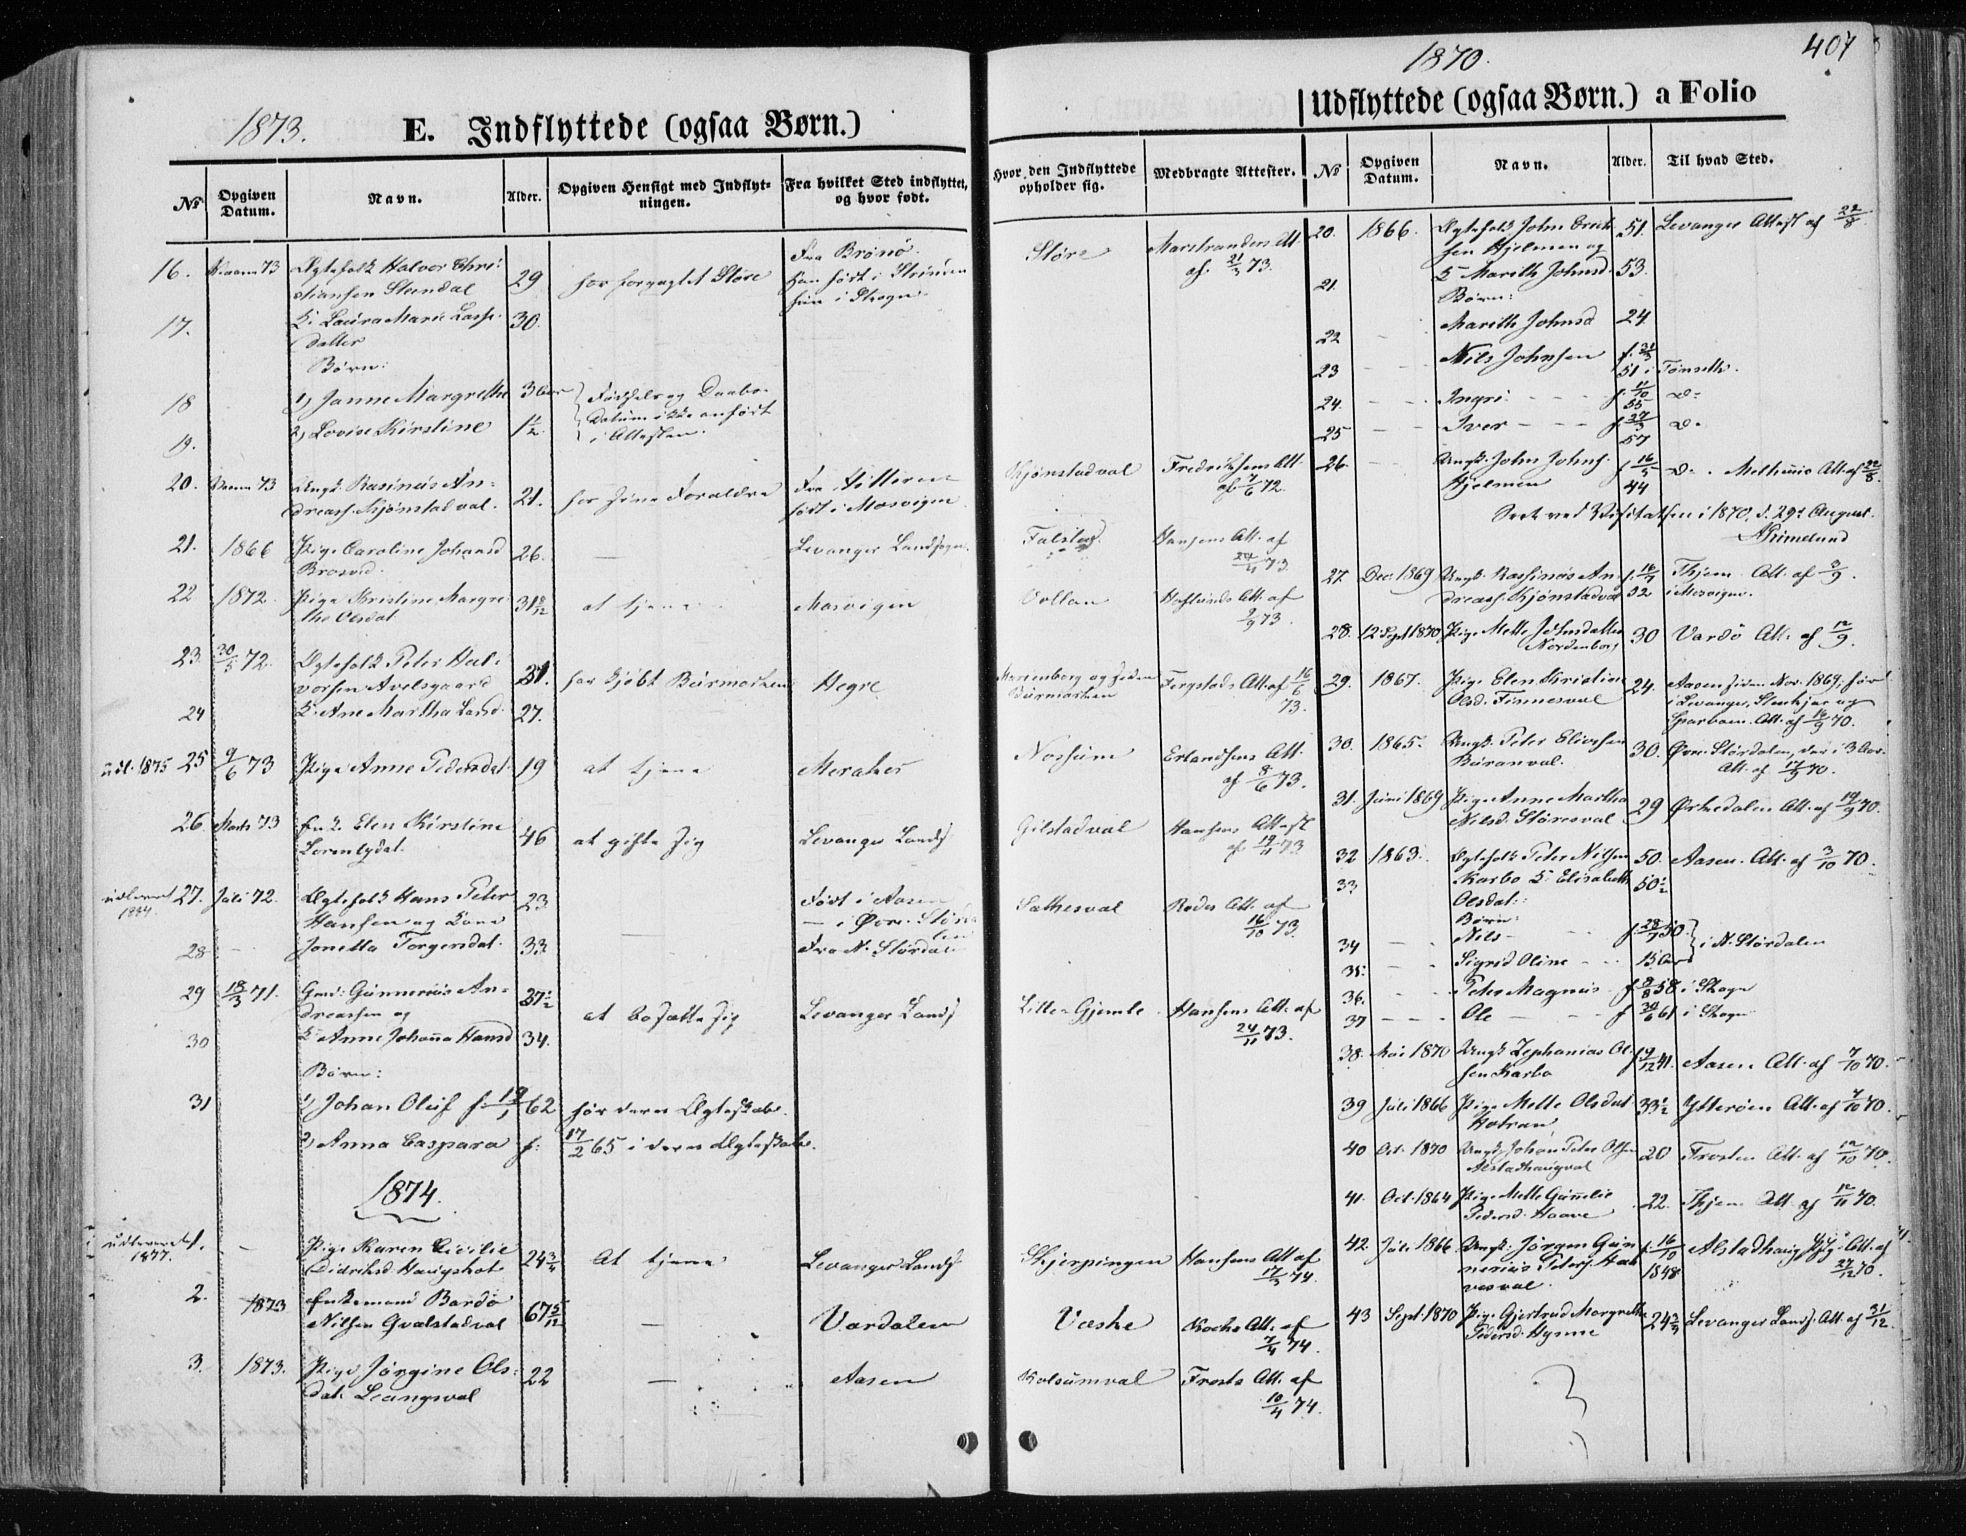 1873.
E. Indflyttede (ogsaa Børn.)
No
Opgiven Datum.
Navn.
Alder.
Opgiven Hensigt med Indflytningen.
Fra hvilket Sted indflyttet, og hvor født.
Hvor den Indflyttede opholder sig.
Medbragte Attester.
16. 73 Ægtefolk Halvor Chri-
stiansen Steendal 29 har forpagtet Støre
Fra Brønö.
Han født i Strinden
hun i Skogn.
Støre Marstranders Att.
af 21/3 73.
17. K. Laura Marie Lasse-
datter 30.
Børn:
18 1) Janne Margrethe 3 Aar Fødsels og Daabs-
Datum ikke anført
i Attesten.
19. 2) Lovise Kirstine 1½
20. 73 Ungk. Rasinus An-
dreass. Kjønstadval. 21. hos sine Forældre Fra Hitteren
født i Mosvigen Kjønstadval Fredriksens Att.
af 7/6 72.
21. 1866 Pige Caroline Johansd
26. — Levanger Landsogn. Falstad. Hansens Att. af
24/4 73
22 1872. Pige Kristine Margre-
the Olsdat. 31 8/12 at tjene Mosvigen Vollan Høglunds Att. af
9/9 73.
23. 30/5 72. Ægtefolk Peter Hal-
vorsen Avelsgaard 31. har kjøbt Burmarken Hegre Marienborg og siden
Burmarken Fergstads Att. af 16/6
73.
24 K. Ane Martha 27.
udl. 1875 25 9/6 73 Pige Anne Pedersdat. 19 at tjene Meraker Nossum Erlandsens Att.
af 8/6 73.
26. Marts 73 Enke Elen Kirstine
Lorentsdat. 46 at gifte sig Levanger Lands. Gilstadval Hansens Attest
af 19/11 73
udleveret
1884. 27. Juli 72. Ægtefolk Hans Peter
Hansen og Kone 23 Født i Aasen
— i Øvre Stør-
dalen Salthesval Rodes Att. af
16/10 73.
28 — Jonetta Torgersdat. 33 — Fra N. Størdalen
29 18/3 71. Gmd. Gunnerius An-
dreassen og 37½ at bosætte sig Levanger Lands. Lille-Gjemble Hansens Att. af
24/11 73.
30 K. Anne Johanna Hansd 34.
Børn:
31 1) Johan Oluf f. 19/1 62 før deres Ægteskab.
2) Anna Caspara f: 17/2 65 i deres Ægteskab.
1874.
udleveret
1877. — Pige Karen Cecilie
Didriksd Haugshat 24 3/4 At tjene Levanger Lands. Skjerpingen Hansens Att af
17/3 74.
2. 1873 Enkemand Bardo
Nilsen Gvalstadval 67 5/12 — Værdalen Væske Kochs Att. af
7/4 74.
3. 1873. Pige Jørgine Ols-
dat. Leangsval 22 — Aasen Kolsumval Frosta Att. af
10/4 74.
1870.
407
Udflyttede (ogsaa Børn.) a Folio
No
Opgiven Datum.
Navn.
Alder.
Til hvad Sted.
20. 1866. Ægtefolk John Erik-
sen Hjelmen og 51. Levanger Attest af 22/8
21. K. Marith Johnsd. 53.
Børn:
22 — Marith Johnsd 24.
23 — Nils Johnsen f. 31/3
51 i Tønsetle.
24. — Ingri — f. 11/10
55 do
25 — Iver — f. 27/3
57 do
26. Ungk. John Johns.
Hjelmen f 16/5
44 do. Att. af 22/8.
Seet ved Visitatsen i 1870, d. 29d August.
27. Dec. 1869 Ungk. Rassinus An-
dreass. Kjønstadval f. 16/4
52 Thjem Att. af 3/9.
i Mosvigen.
28. 12 Sept 1870 Pige Mette Johnsdatter
Nordenborg 30 Vardö Att. af 12/9.
29. 1867. Pige Elen Kristine
Olsd. Finnesval 24. Aasen siden Nov. 1869, før
i Levanger, Stenkjær og
Sparboen. Att. af 16/9 70.
30. 1865. Ungk. Peter Eliasen
Buranval. 30. Øvre Størdalen, der i 3 Aar.
Att. af 17/9 70.
31. Juni 1869 Pige Anne Martha
Nilsd. Støresval 29 Ørkedalen Att. af 19/9 70.
32 1863. Ægtefolk Peter Nilsen 50. Aasen. Att. af 3/10 70.
33 Karbo K. Elisabeth
Olsdat.: 50½
Børn:
34 — Nils — f. 28/7 50. i N. Størdalen
35. — Sigrid Oline — 15 Aar
36. — Peter Magnus f 9/8 58 i Skogn
37 — Ole — f 30/6 61 i Skogn
38. Mai 1870 Ungk Zephanias Ol-
sen Karbo f 9/12 41. Aasen Att. af 7/10 70.
39 Juli 1866 Pige Mette Olsdat
Hotran 33½ Ytterøen Att. af 7/10 70.
40 Oct. 1870 Ungk Johan Peter Olsen
Alstadhaugval 20 Frosten Att. af 12/10 70.
41. Oct. 1864 Pige Mette Gunelie
Pedersd. Haave 22. Thjem Att. af 12/11 70.
42. Juli 1866 Ungk. Jørgen Gun-
nerius Peters. Hal-
vesval f. 16/10
1848 Alstadhaug Att. af
27/12 70.
43 Sept 1870 Pige Gjertrud Margrethe
Pedersd. Hynne 24 3/4 Levanger Lands. Att. af 31/12.